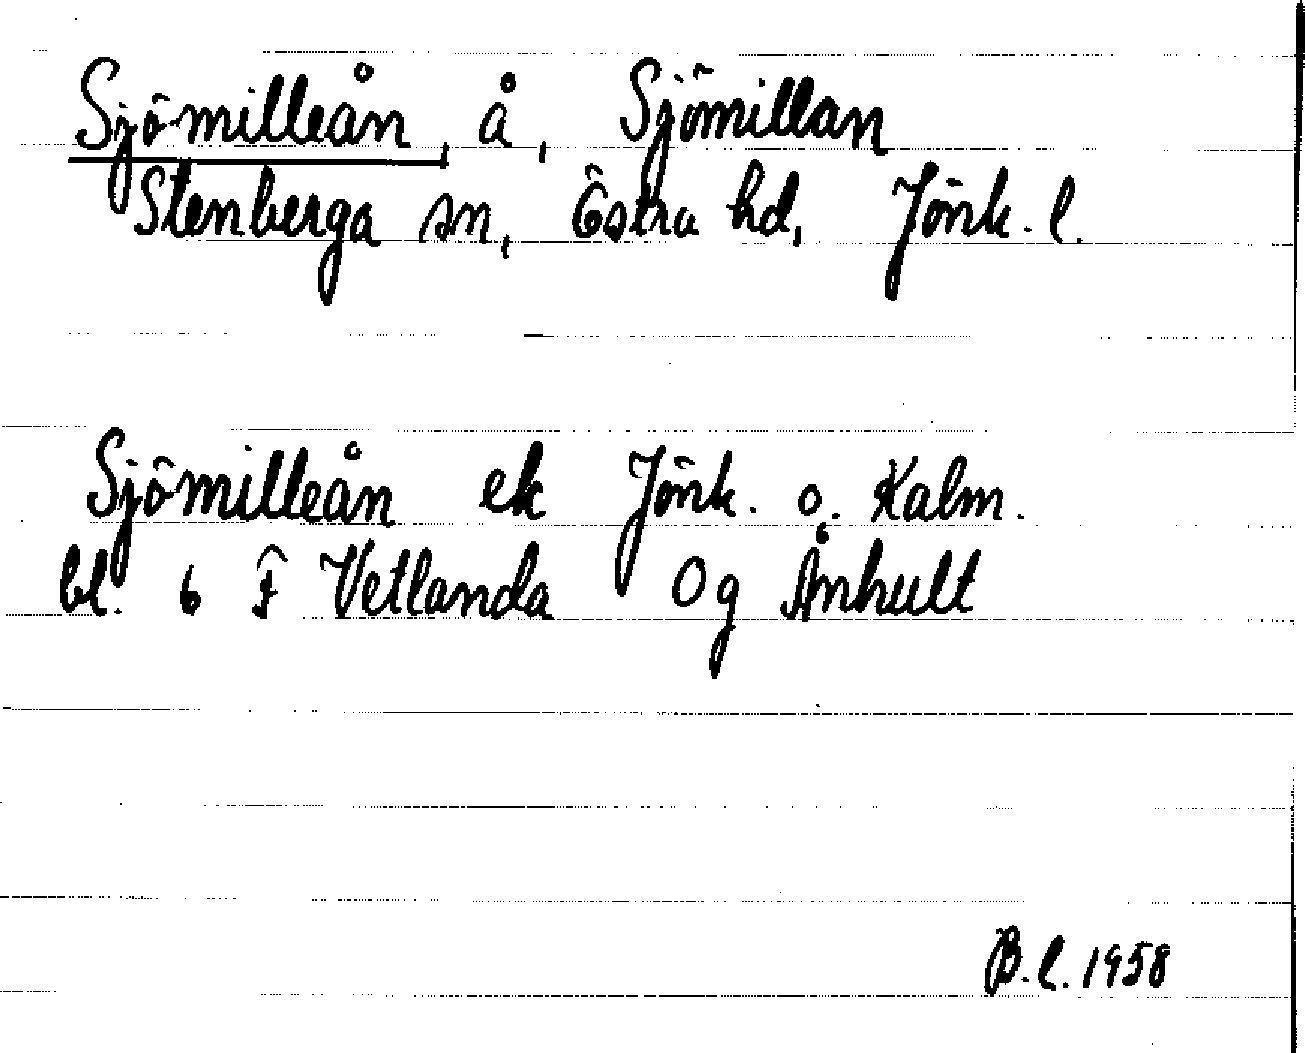 Sjömilleån, å, Sjömillan
Stenberga sn, Östra hd, Jönk. l.
Sjömilleån ek Jönk. o. Kalm.
bl. 6 F Vetlanda Og Ånhult
B.L. 1958